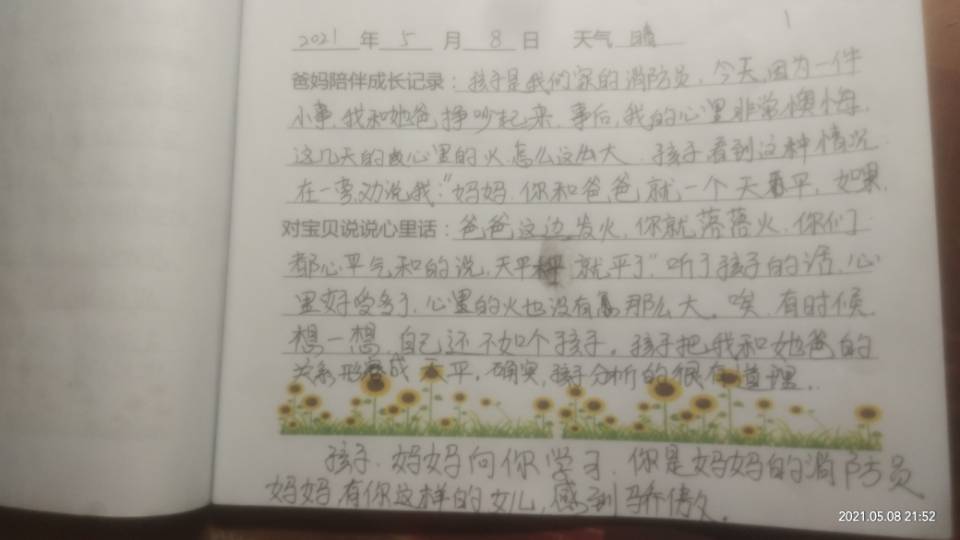 1
2021 年 5 月 8 日 天气 晴
爸妈陪伴成长记录：孩子是我们家的消防员，今天因为一件
小事，我和她爸争吵起来，事后，我的心里非常懊悔，
这几天的心里的火怎么这么大，孩子看到这种情况
在一旁劝说我："妈妈，你和爸爸就一个天平，如果，
对宝贝说说心里话：爸爸这边发火，你就落落火，你们
都心平气和的说，天平就平了"听了孩子的话，心
里好受多了，心里的火也没有那么大。唉，有时候
想一想，自己还不如个孩子，孩子把我和她爸的
关系形容成天平，确实，孩子分析的很有道理。
孩子，妈妈向你学习，你是妈妈的消防员
妈妈有你这样的女儿，感到骄傲。
2021.05.08 21:52